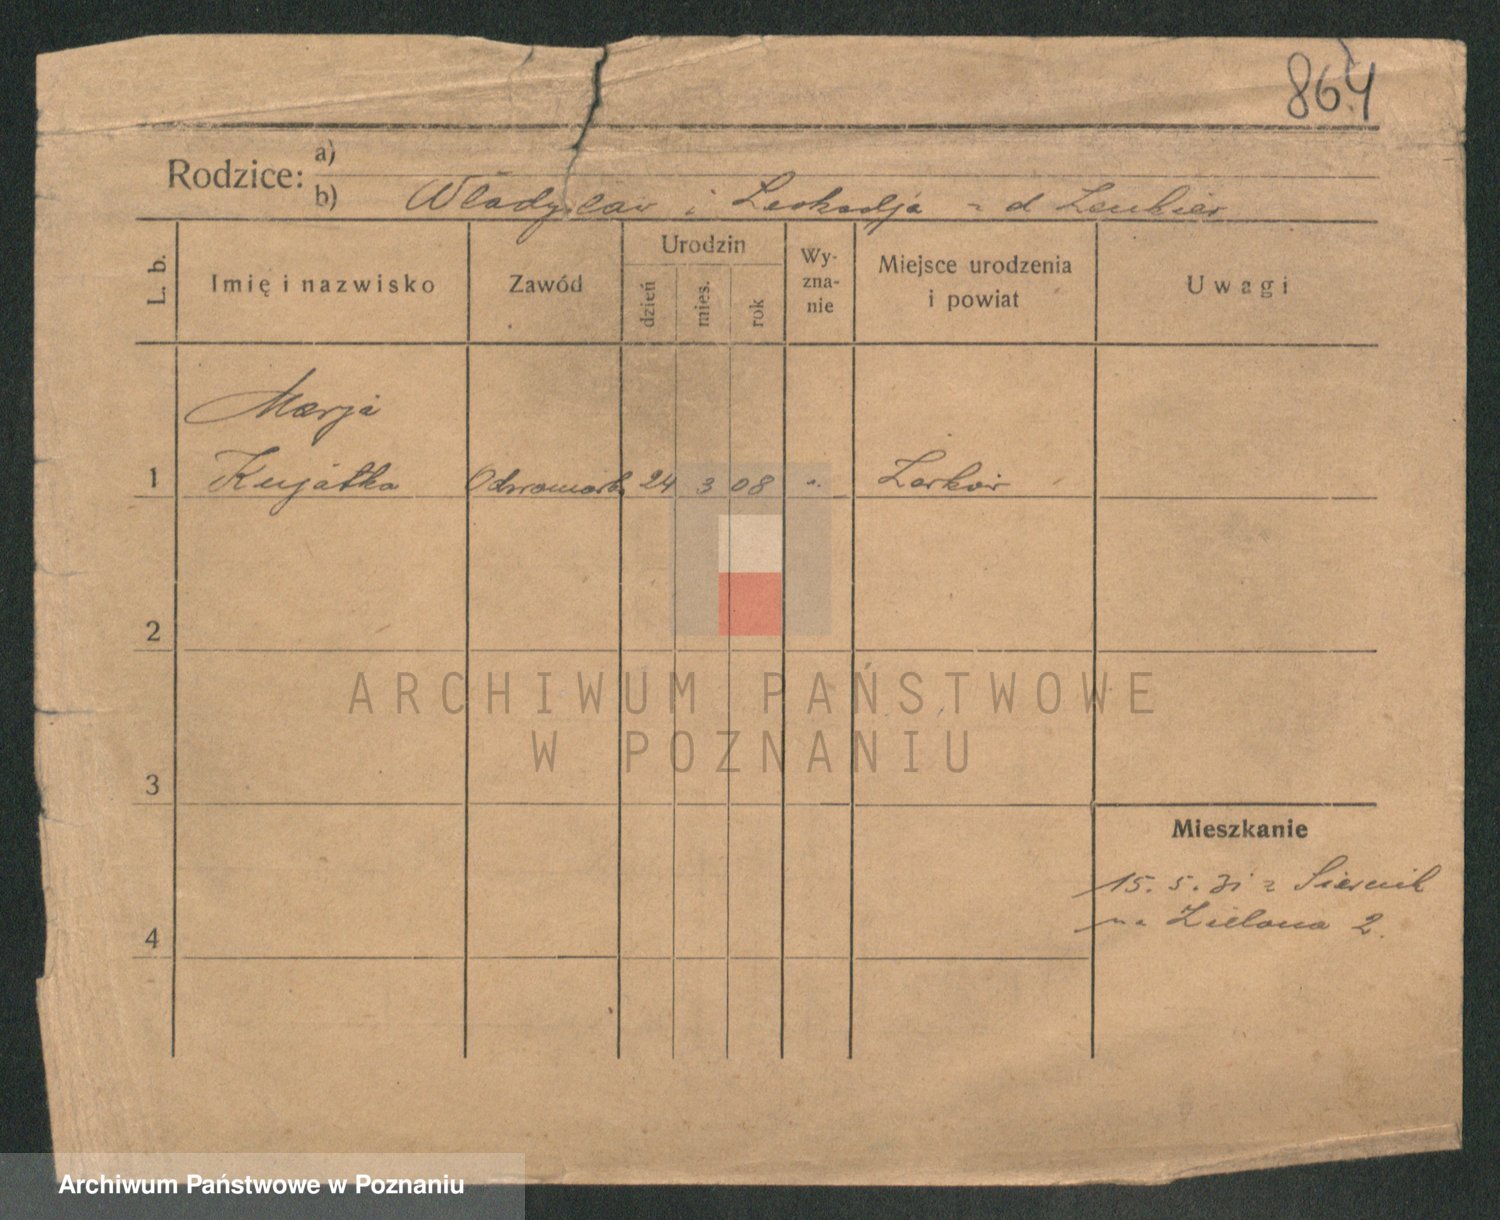 864
Rodzice:
a)
b) Władysław i Leokadja z d
L. b.
Imię i nazwisko
Zawód
Urodzin
dzień
mies.
rok
Wy-
zna-
nie
Miejsce urodzenia
i powiat
Uwagi
Marja
1 Kujátka 24 3 08 Żerków
2
3
4
Mieszkanie
15. 5. 31 z Siernik
na Zielona 2.
ARCHIWUM PAŃSTWOWE
W POZNANIU
Archiwum Państwowe w Poznaniu